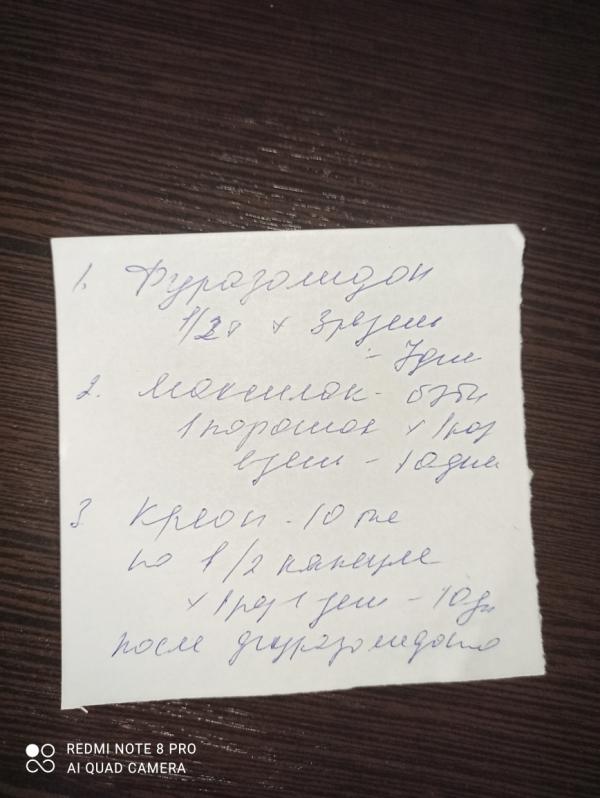 1. Фуразолидон
1/2 т х 3 р в день
- 7 дн
2. Максилак - бэби
1 порошок х 1 раз
в день - 10 дней
3 Креон - 10 тые
по 1/2 капсуле
х 1 раз в день - 10 дн
после фуразолидона
REDMI NOTE 8 PRO
AI QUAD CAMERA